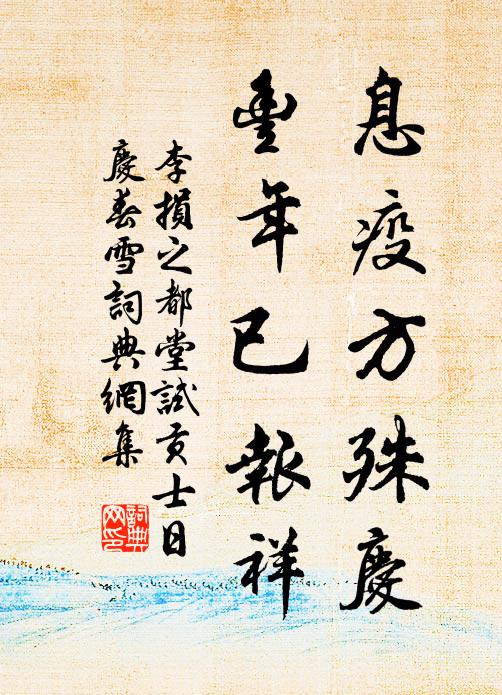 息疫方殊慶
豐年已報祥
李損之都堂試貢士日
慶春雪詞典網集
詞典網印